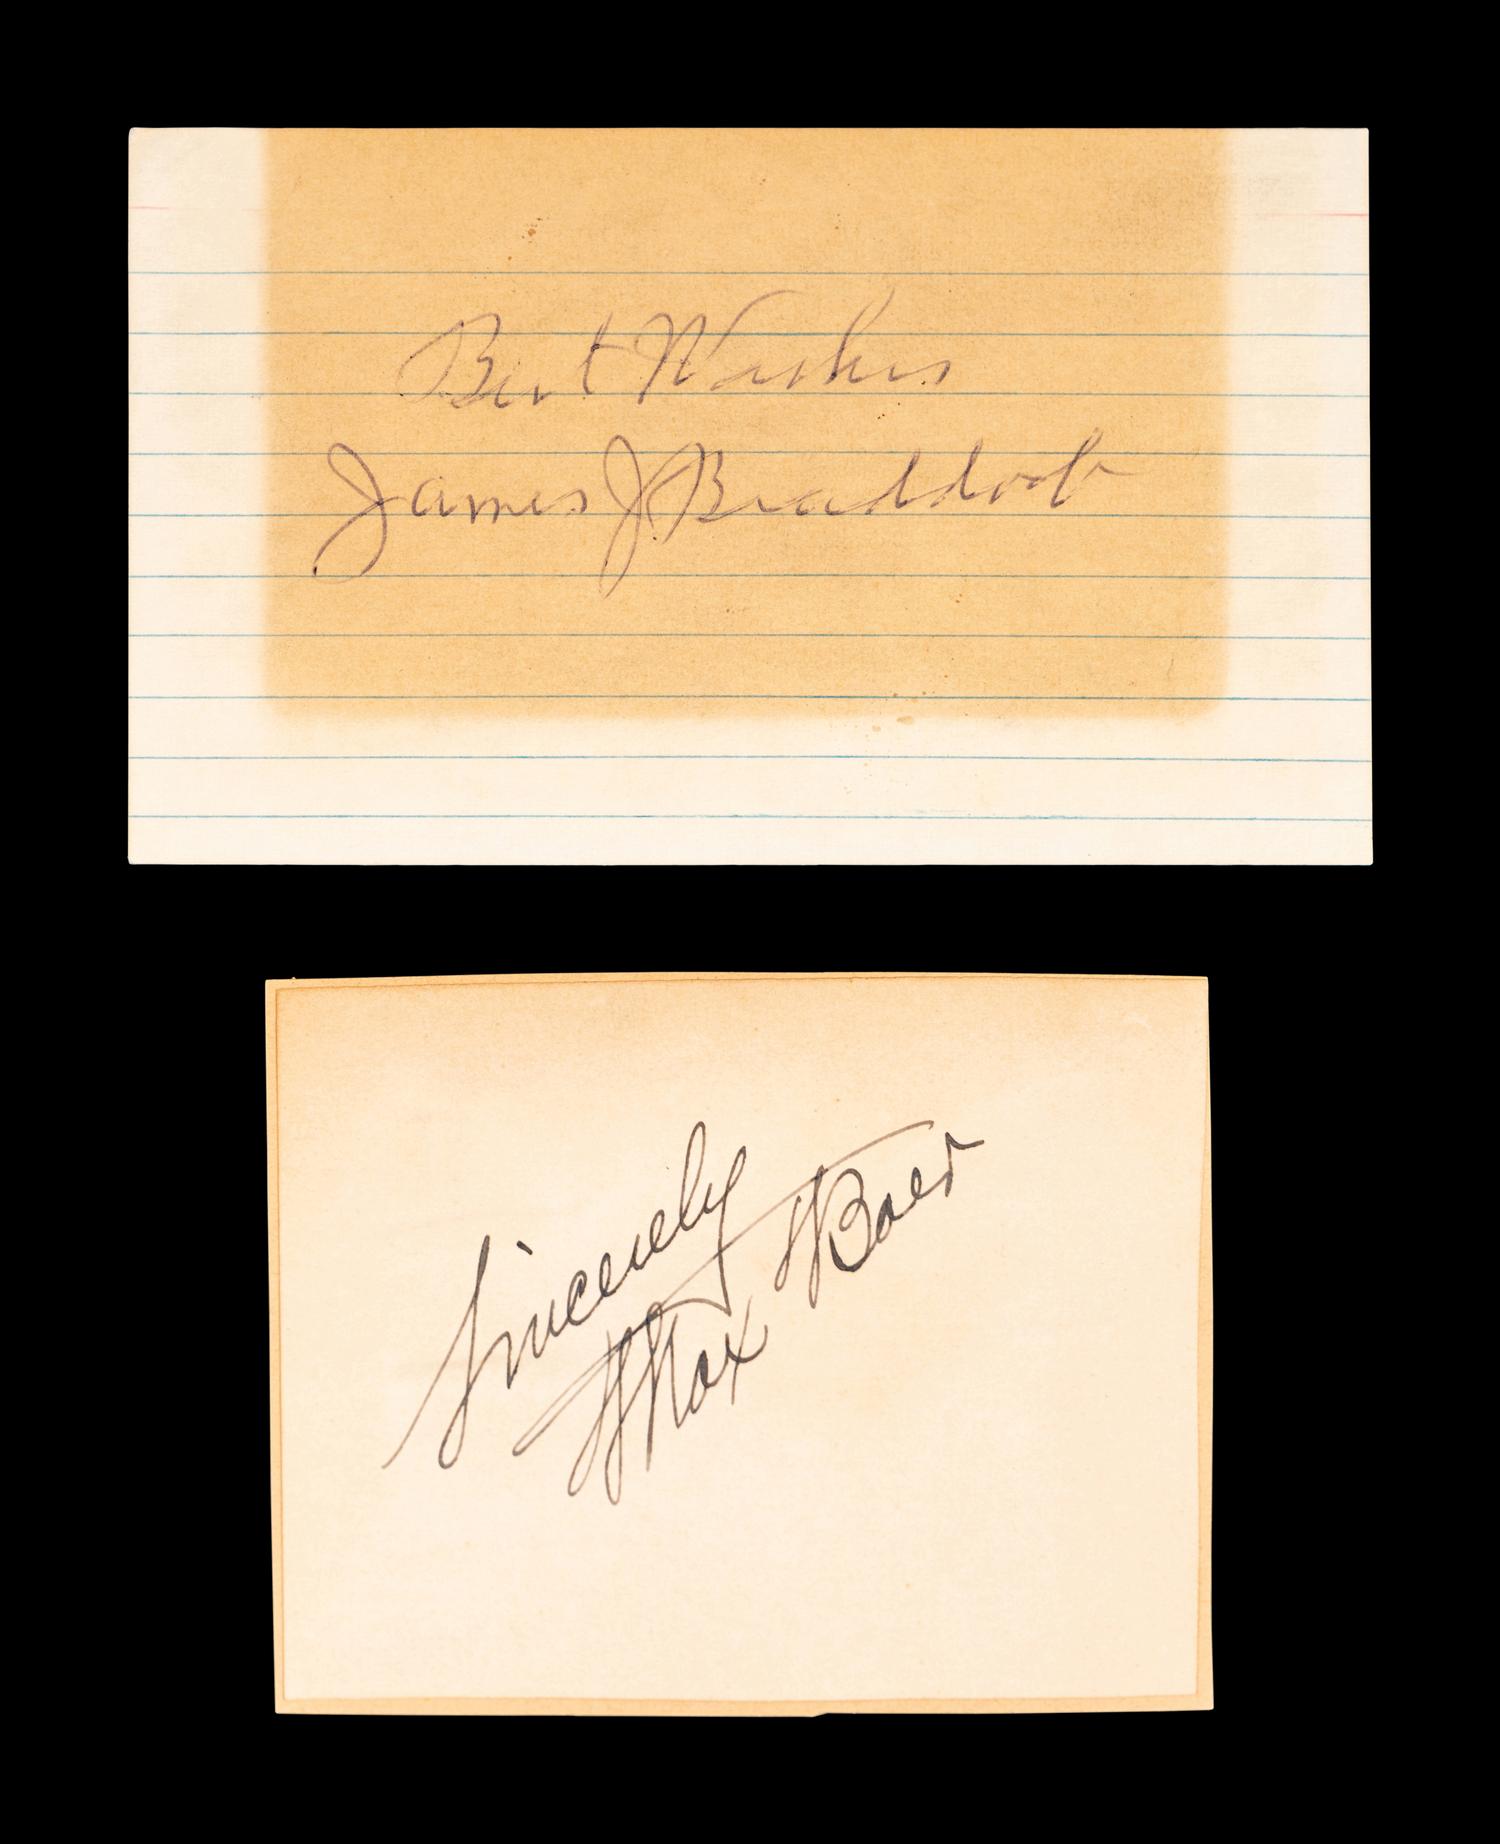 Best Wishes
James J Braddock
Sincerely
Max Baer